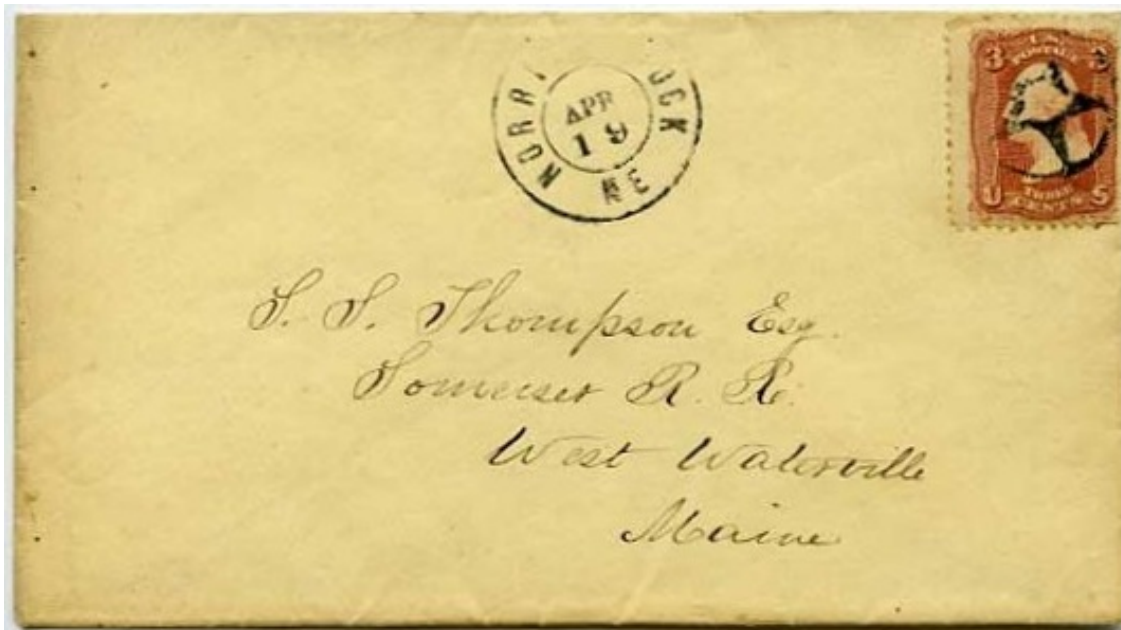 NORR OCK
APR
19
ME
3 3
U.S.
POSTAGE
U S
THREE
CENTS
S. S. Thompson Esq.
Somerset R. R.
West Waterville
Maine